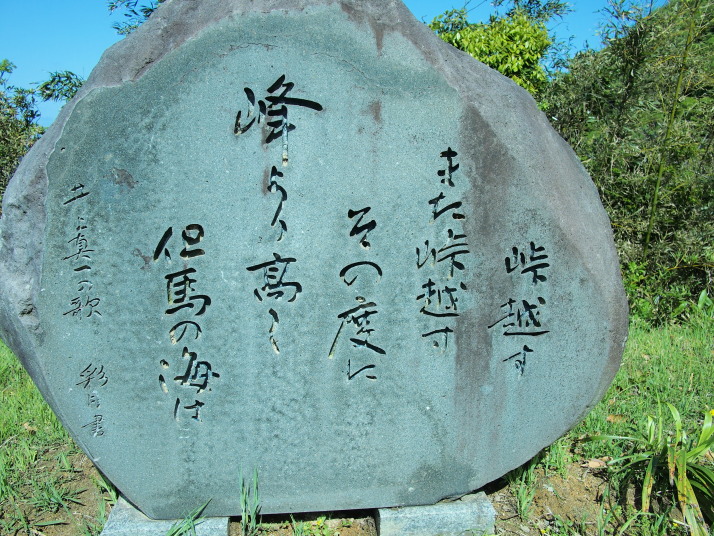 峠越す
また峠越す
その度に
峰より高く
但馬の海は
井上真一の歌
彩月書